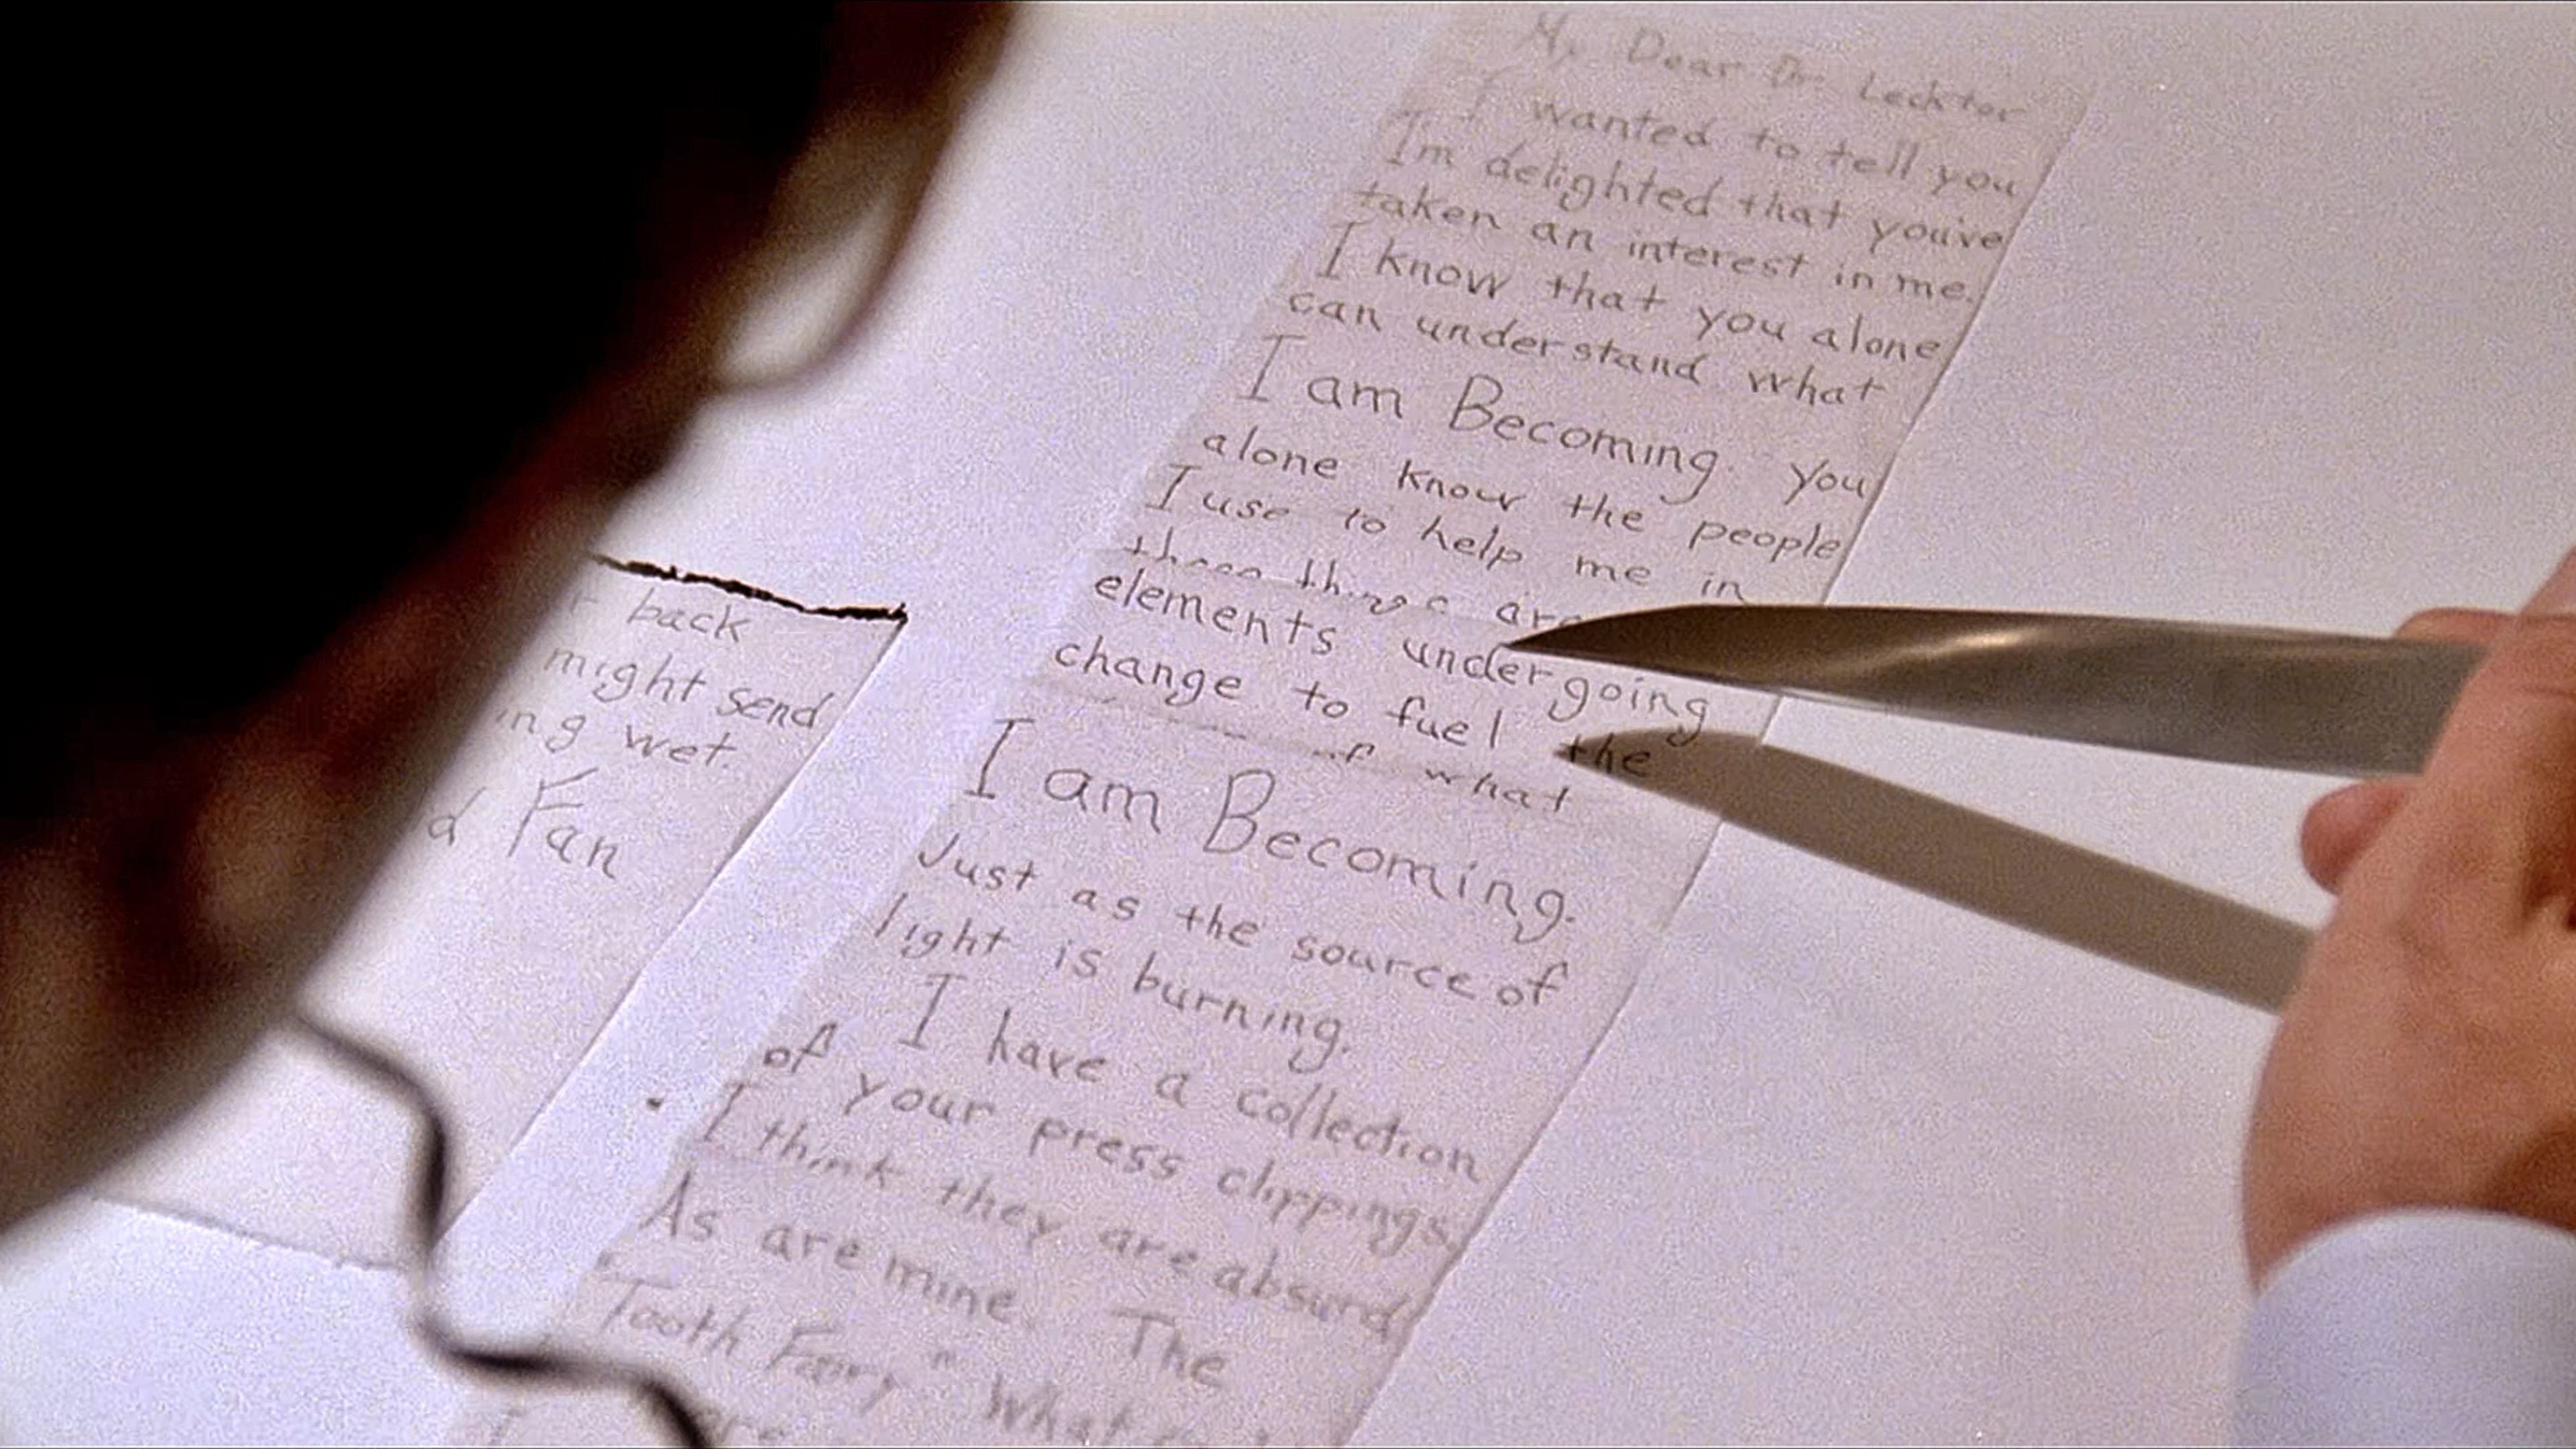 My Dear Dr. Lecktor
I wanted to tell you
I'm delighted that you've
taken an interest in me.
I know that you alone
can understand what
I am Becoming. You
alone know the people
I use to help me in
these things are
elements undergoing
change to fuel the
of what
I am Becoming.
Just as the source of
light is burning.
I have a collection
of your press clippings.
I think they are absurd.
As are mine. The
Tooth Fairy" What
back
might send
ing wet.
d Fan